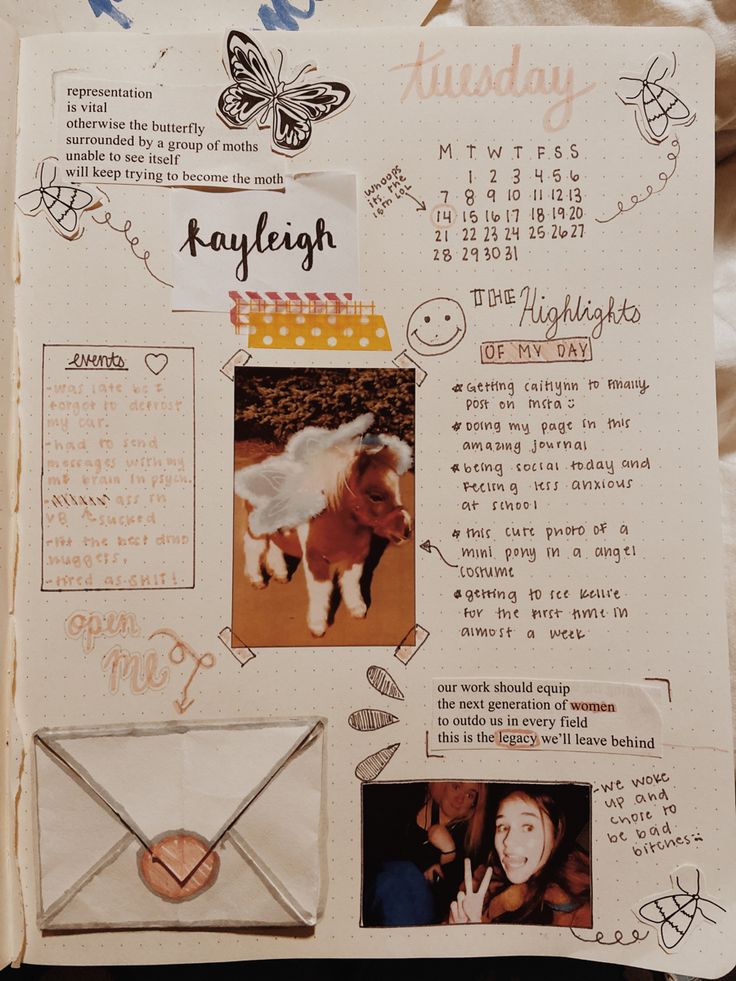 representation
is vital
otherwise the butterfly
surrounded by a group of moths
unable to see itself
will keep trying to become the moth
Kayleigh
Tuesday
M T W T F S S
1 2 3 4 5 6
7 8 9 10 11 12 13
14 15 16 17 18 19 20
21 22 23 24 25 26 27
28 29 30 31
whoops
its the
15th LOL
THE Highlights
OF MY DAY
Getting caitlynn to finally
post on insta
Doing my page in this
amazing journal
being social today and
feeling less anxious
at school
this cute photo of a
mini pony in a angel
costume
getting to see Kellie
for the first time in
almost a week
events
- was late bc I
forgot to defrost
my car.
- had to send
messages with my
brain in psych.
- ass in
VB sucked
- the best dino
nuggets.
- tired as SHIT!
open
me
our work should equip
the next generation of women
to outdo us in every field
this is the legacy we'll leave behind
- we woke
up and
chose to
be bad
bitches